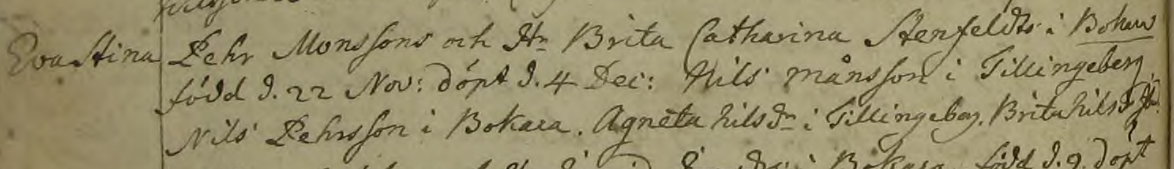 Eva Stina Pehr Monssons och H:n Brita Catharina Stenfeldts i Bokara
född d. 22 Nov: döpt d. 4 Dec: Nils månsson i Tillingeberg.
Nils Pehrsson i Bokara. Agneta Nilsd:r i Tillingeberg. Brita Nilsd:r
i Bokara född d. 9. döpt